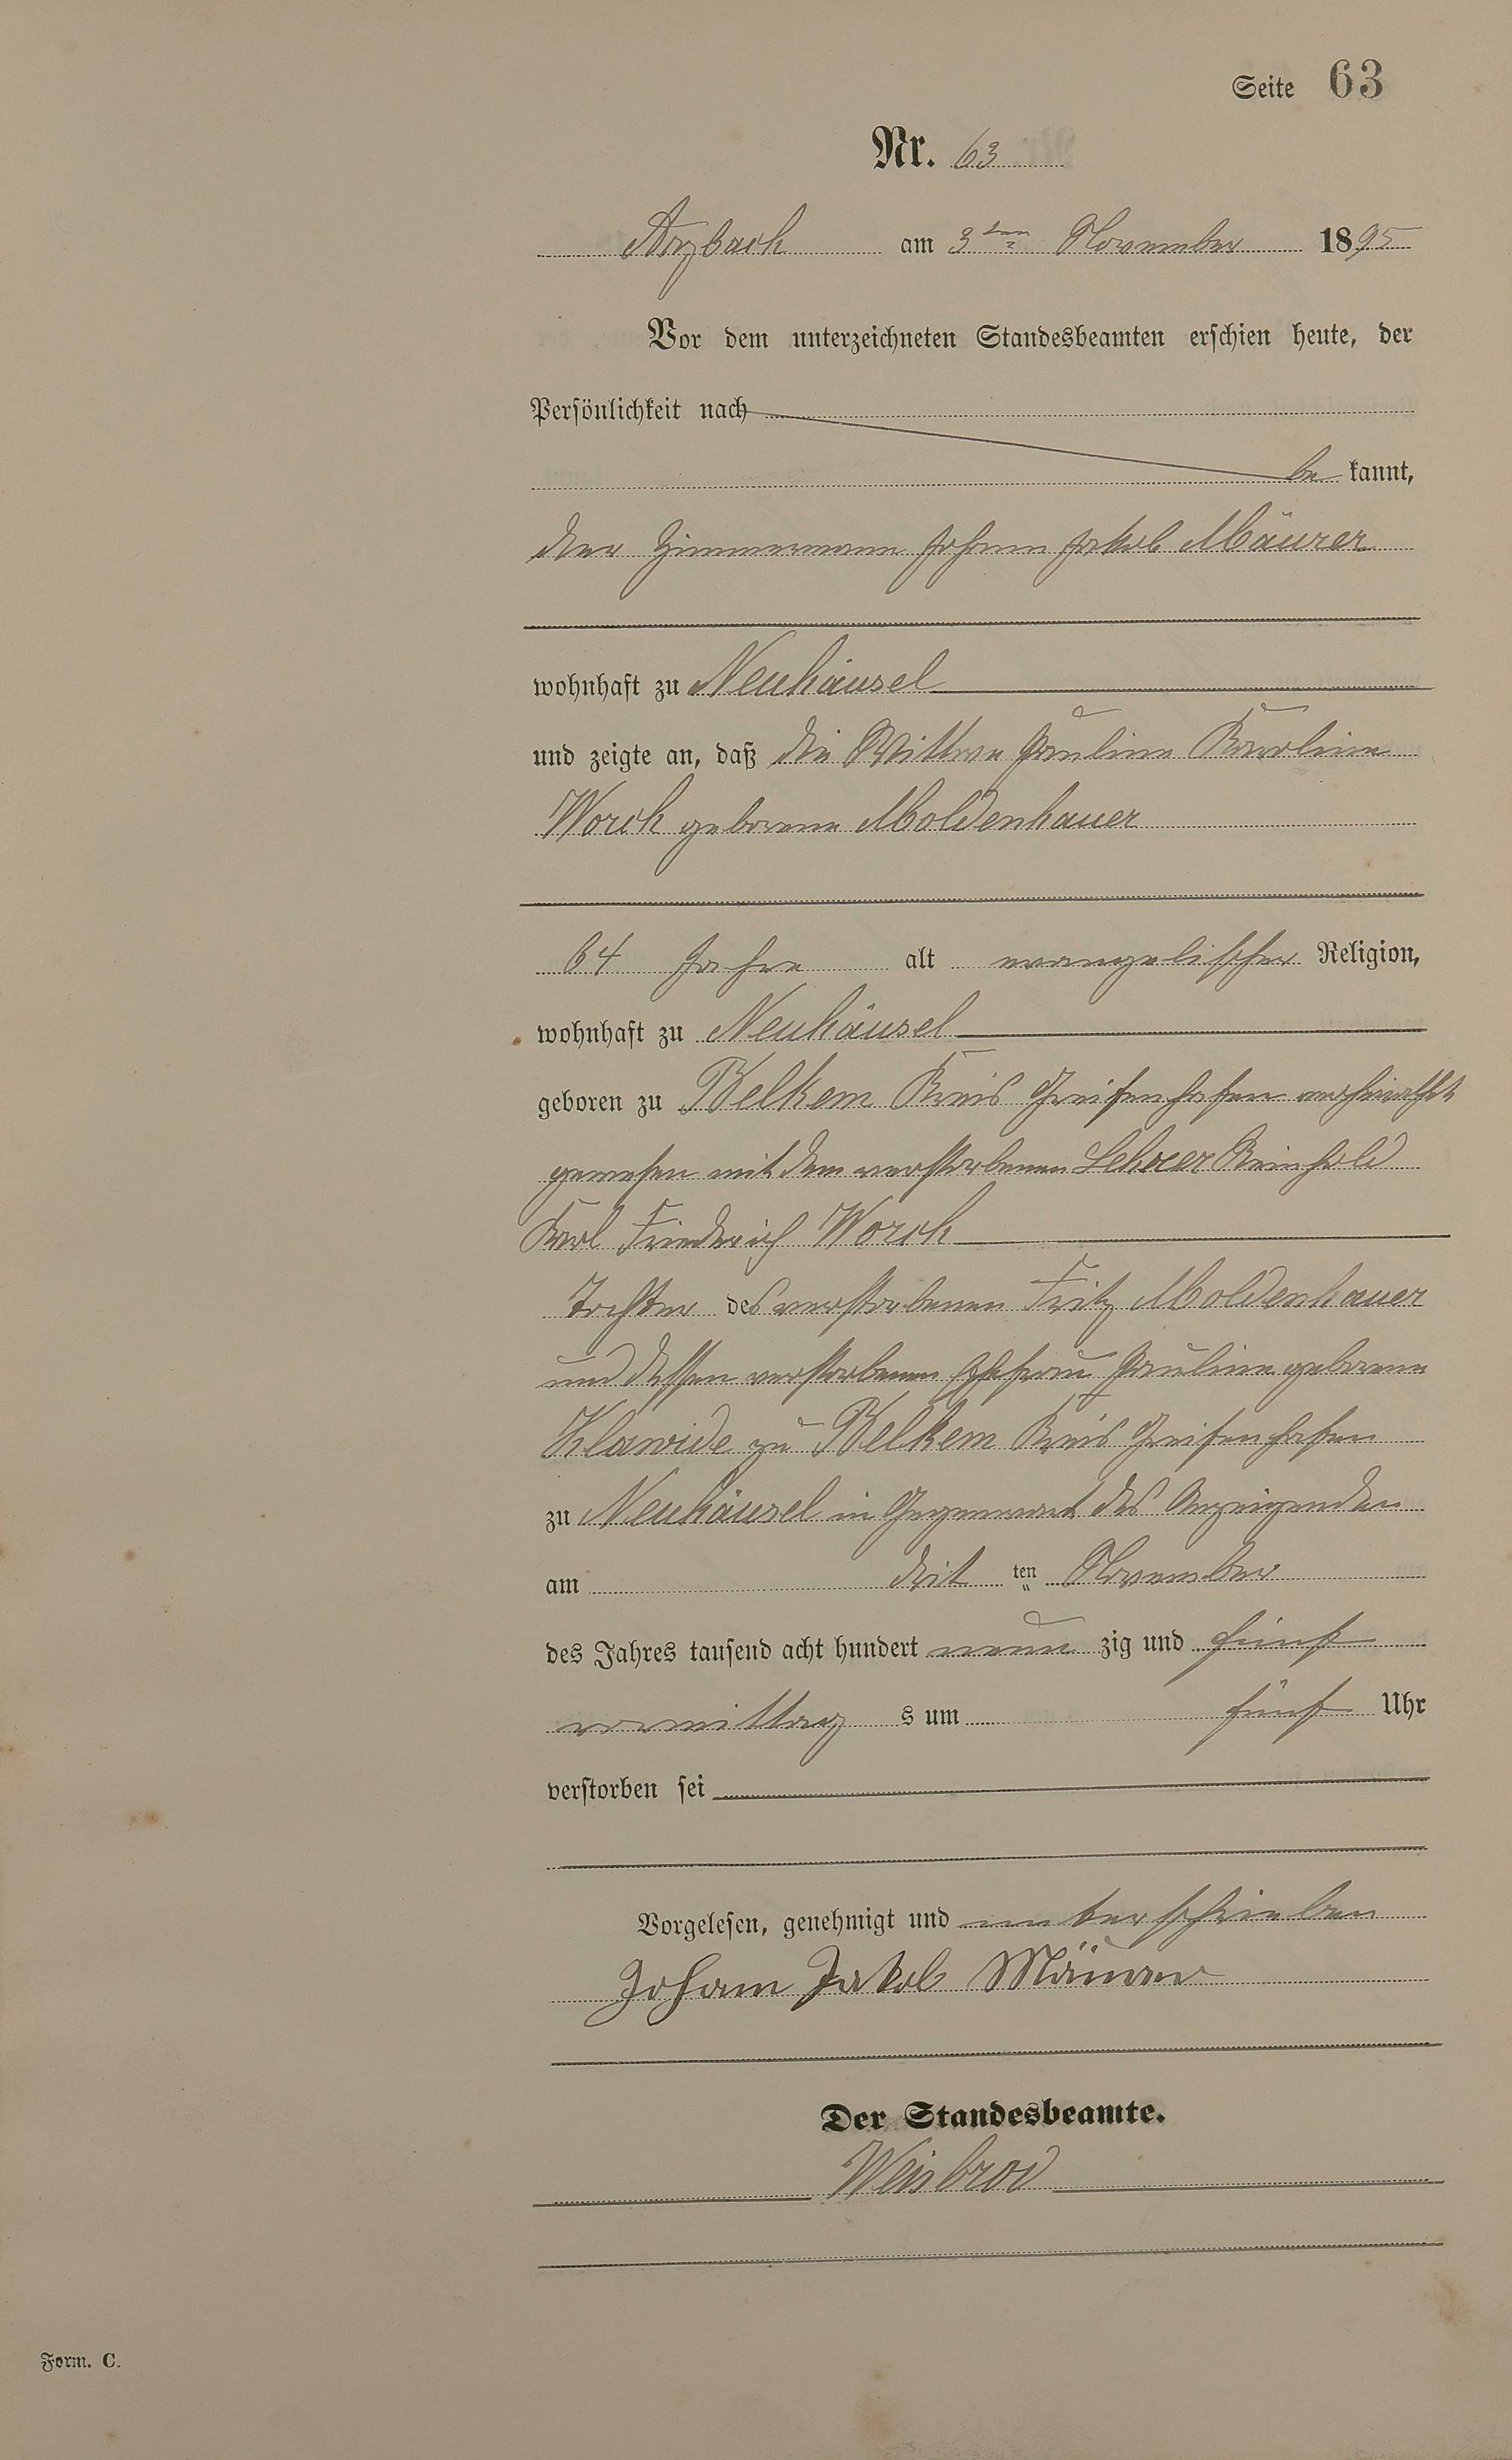 Seite 63
Nr. 63
Arzbach am 3ten November 1895
Vor dem unterzeichneten Standesbeamten erschien heute, der
Persönlichkeit nach
be kannt,
der Zimmermann Johann Jakob Mäurer
wohnhaft zu Neuhäusel
und zeigte an, daß die Wittwe Pauline Karoline
Worch geborene Moldenhauer
64 Jahre alt evangelischer Religion,
wohnhaft zu Neuhäusel
geboren zu Belkem Kreis Greifenhafen verheirathet
gewesen mit dem verstorbenen Lehrer Reinhold
Karl Friedrich Worch
Tochter des verstorbenen Fritz Moldenhauer
und dessen verstorbenen Ehefrau Pauline geborene
Klawide zu Belkem Kreis Greifenhafen
zu Neuhäusel in Gegenwart des Anzeigenden
am drit ten November
des Jahres tausend acht hundert neun zig und fünf
vormittag s um fünf Uhr
verstorben sei
Vorgelesen, genehmigt und unterschrieben
Johann Jakob Mäurer
Der Standesbeamte.
Weisbrod
Form. C.